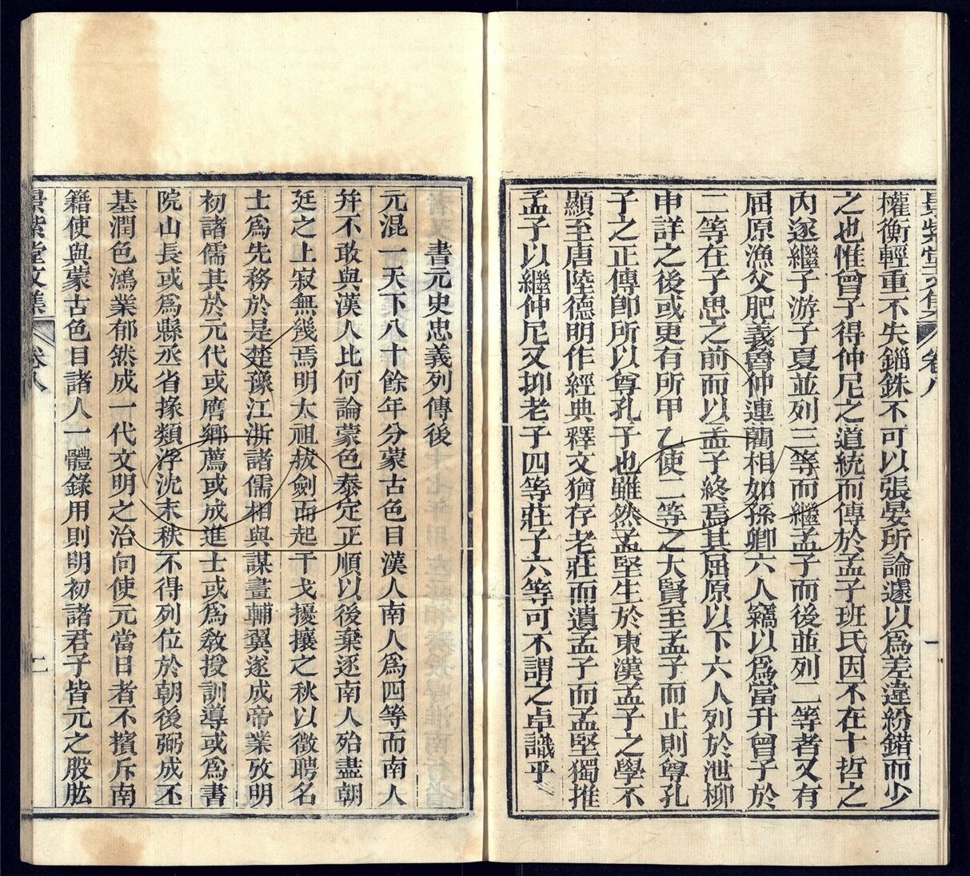 權衡輕重不失錙銖不可以張晏所論遽以爲差違紛錯而少
之也惟曾子得仲尼之道統而傳於孟子班氏因不在十哲之
內遂繼子游子夏並列三等而繼孟子而後並列二等者又有
屈原漁父肥義魯仲連藺相如孫卿六人竊以爲當升曾子於
二等在子思之前而以孟子終焉其屈原以下六人列於泄柳
申詳之後或更有所甲乙使二等之大賢至孟子而止則尊孔
子之正傳卽所以尊孔子也雖然孟堅生於東漢孟子之學不
顯至唐陸德明作經典釋文猶存老莊而遺孟子而孟堅獨推
孟子以繼仲尼又抑老子四等莊子六等可不謂之卓識乎
景紫堂文集 卷八 一
書元史忠義列傳後
元混一天下八十餘年分蒙古色目漢人南人爲四等而南人
幷不敢與漢人比何論蒙色泰定正順以後棄逐南人殆盡朝
廷之上寂無幾焉明太祖拔劍而起干戈擾攘之秋以徵聘名
士爲先務於是楚豫江浙諸儒相與謀畫輔翼遂成帝業攷明
初諸儒其於元代或膺鄉薦或成進士或爲敎授訓導或爲書
院山長或爲縣丞省掾類浮沈末秩不得列位於朝後弼成丕
基潤色鴻業郁然成一代文明之治向使元當日者不擯斥南
籍使與蒙古色目諸人一體錄用則明初諸君子皆元之股肱
景紫堂文集 卷八 二